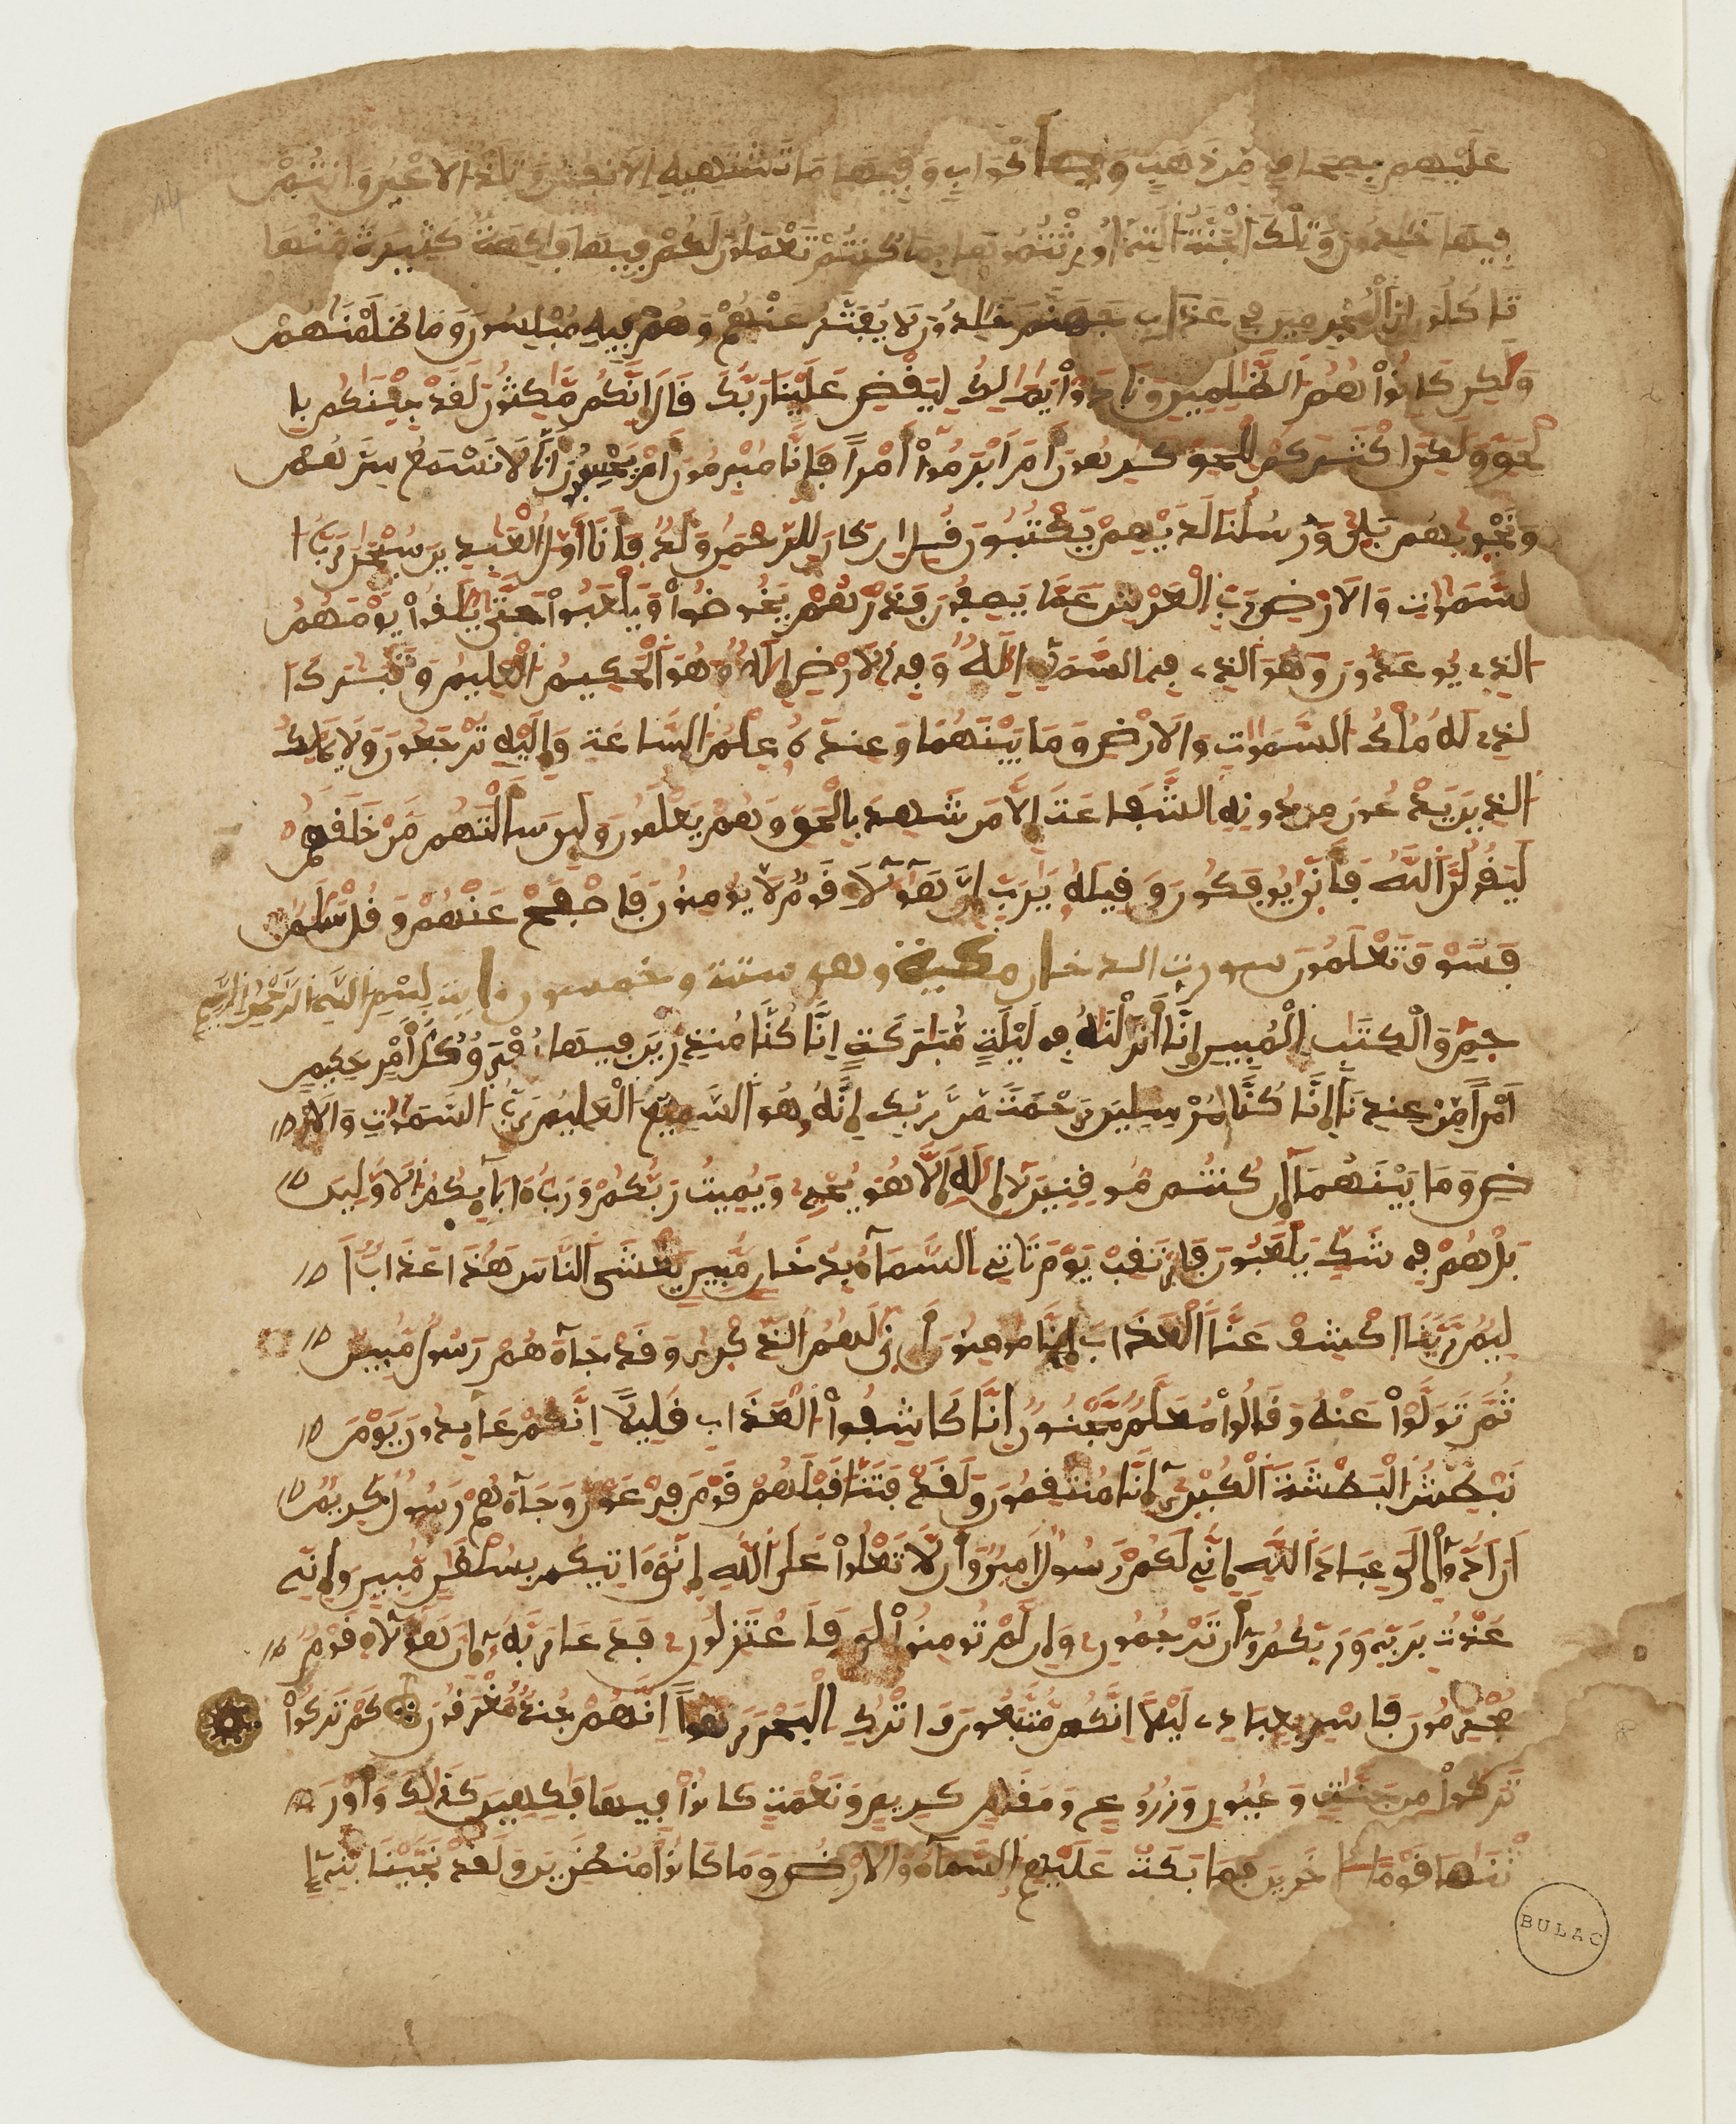 عليهم بصحاف من ذهب وأكواب وفيها ما تشتهيه الأنفس وتلذ الأعين وأنتم
فيها خلدون وتلك الجنة التي أورثتموها بما كنتم تعملون لكم فيها فاكهة كثيرة منها
تاكلون إن المجرمين في عذاب جهنم خلدون لا يفتر عنهم وهم فيه مبلسون وما ظلمنهم
ولكن كانوا هم الظلمين ونادوا يملك ليقض علينا ربك قال إنكم مكثون لقد جئنكم با
لحق ولكن أكثركم للحق كرهون أم أبرموا أمرا فإنا مبرمون أم يحسبون أنا لا نسمع سرهم
ونجويهم بلى ورسلنا لديهم يكتبون قل إن كان للرحمن ولد فأنا أول العبدين سبحن رب ا
لسموت والأرض رب العرش عما يصفون فذرهم يخوضوا ويلعبوا حتى يلقوا يومهم
الذي يوعدون وهو الذي في السماء إله وفي الأرض إله وهو الحكيم العليم وتبرك ا
لذي له ملك السموت والأرض وما بينهما وعنده علم الساعة وإليه ترجعون ولا يملك
الذين يدعون من دونه الشفاعة إلا من شهد بالحق وهم يعلمون ولين سألتهم من خلقهم
ليقولن الله فأنى يوفكون وقيله يرب إن هؤلاء قوم لا يومنون فاصفح عنهم وقل سلم
فسوف تعلمون سورت الدخان مكية وهي ستة وخمسون ءايت بسم الله الرحمن الرحيم
حم والكتب المبين إنا أنزلنه في ليلة مبركة إنا كنا منذرين فيها يفرق كل أمر حكيم
أمرا من عندنا إنا كنا مرسلين رحمة من ربك إنه هو السميع العليم رب السموت والأر
ض وما بينهما إن كنتم موقنين لا إله إلا هو يحي ويميت ربكم ورب ءابايكم الأولين
بل هم في شك يلعبون فارتقب يوم تاتي السماء بدخان مبين يغشى الناس هذا عذاب أ
ليم ربنا اكشف عنا العذاب إنا مومنون أنى لهم الذكرى وقد جاءهم رسول مبين
ثم تولوا عنه وقالوا معلم مجنون إنا كاشفوا العذاب قليلا إنكم عايدون يوم
نبطش البطشة الكبرى إنا منتقمون ولقد فتنا قبلهم قوم فرعون وجاءهم رسول كريم
أن أدوا إلي عباد الله إني لكم رسول أمين وأن لا تعلوا على الله إني ءاتيكم بسلطن مبين وإني
عذت بربي وربكم أن ترجمون وإن لم تومنوا لي فاعتزلون فدعا ربه أن هؤلاء قوم
مجرمون فاسر بعبادي ليلا إنكم متبعون واترك البحر رهوا إنهم جند مغرقون كم تركوا
تركوا من جنت وعيون وزروع ومقام كريم ونعمة كانوا فيها فكهين كذلك وأور
ثنها قوما ءاخرين فما بكت عليهم السماء والأرض وما كانوا منظرين ولقد نجينا بني إ
BULAC